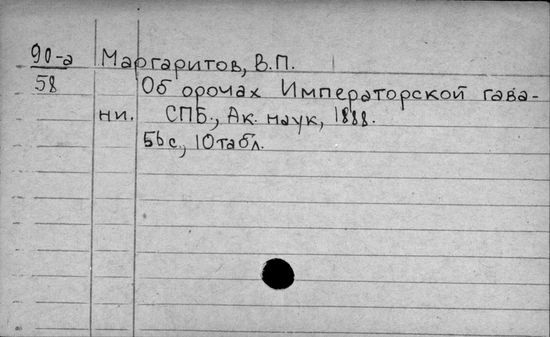 90-а Маргаритов, В.П.
58 Об орочах Императорской гава-
ни. СПБ., Ак. наук, 1888.
56с., 10табл.